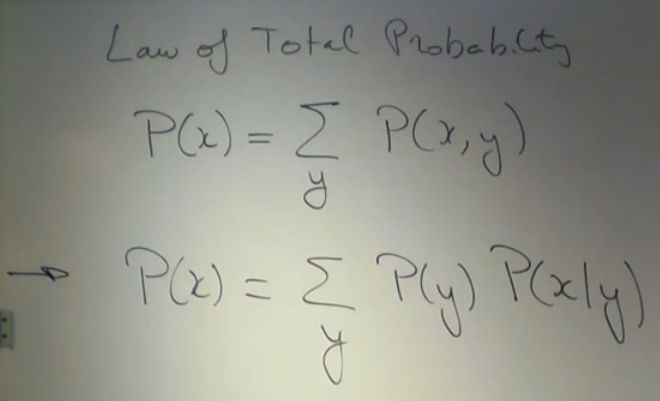 Law of Total Probability
P(x) = Σ P(x,y)
y
→ P(x) = Σ P(y) P(x|y)
y